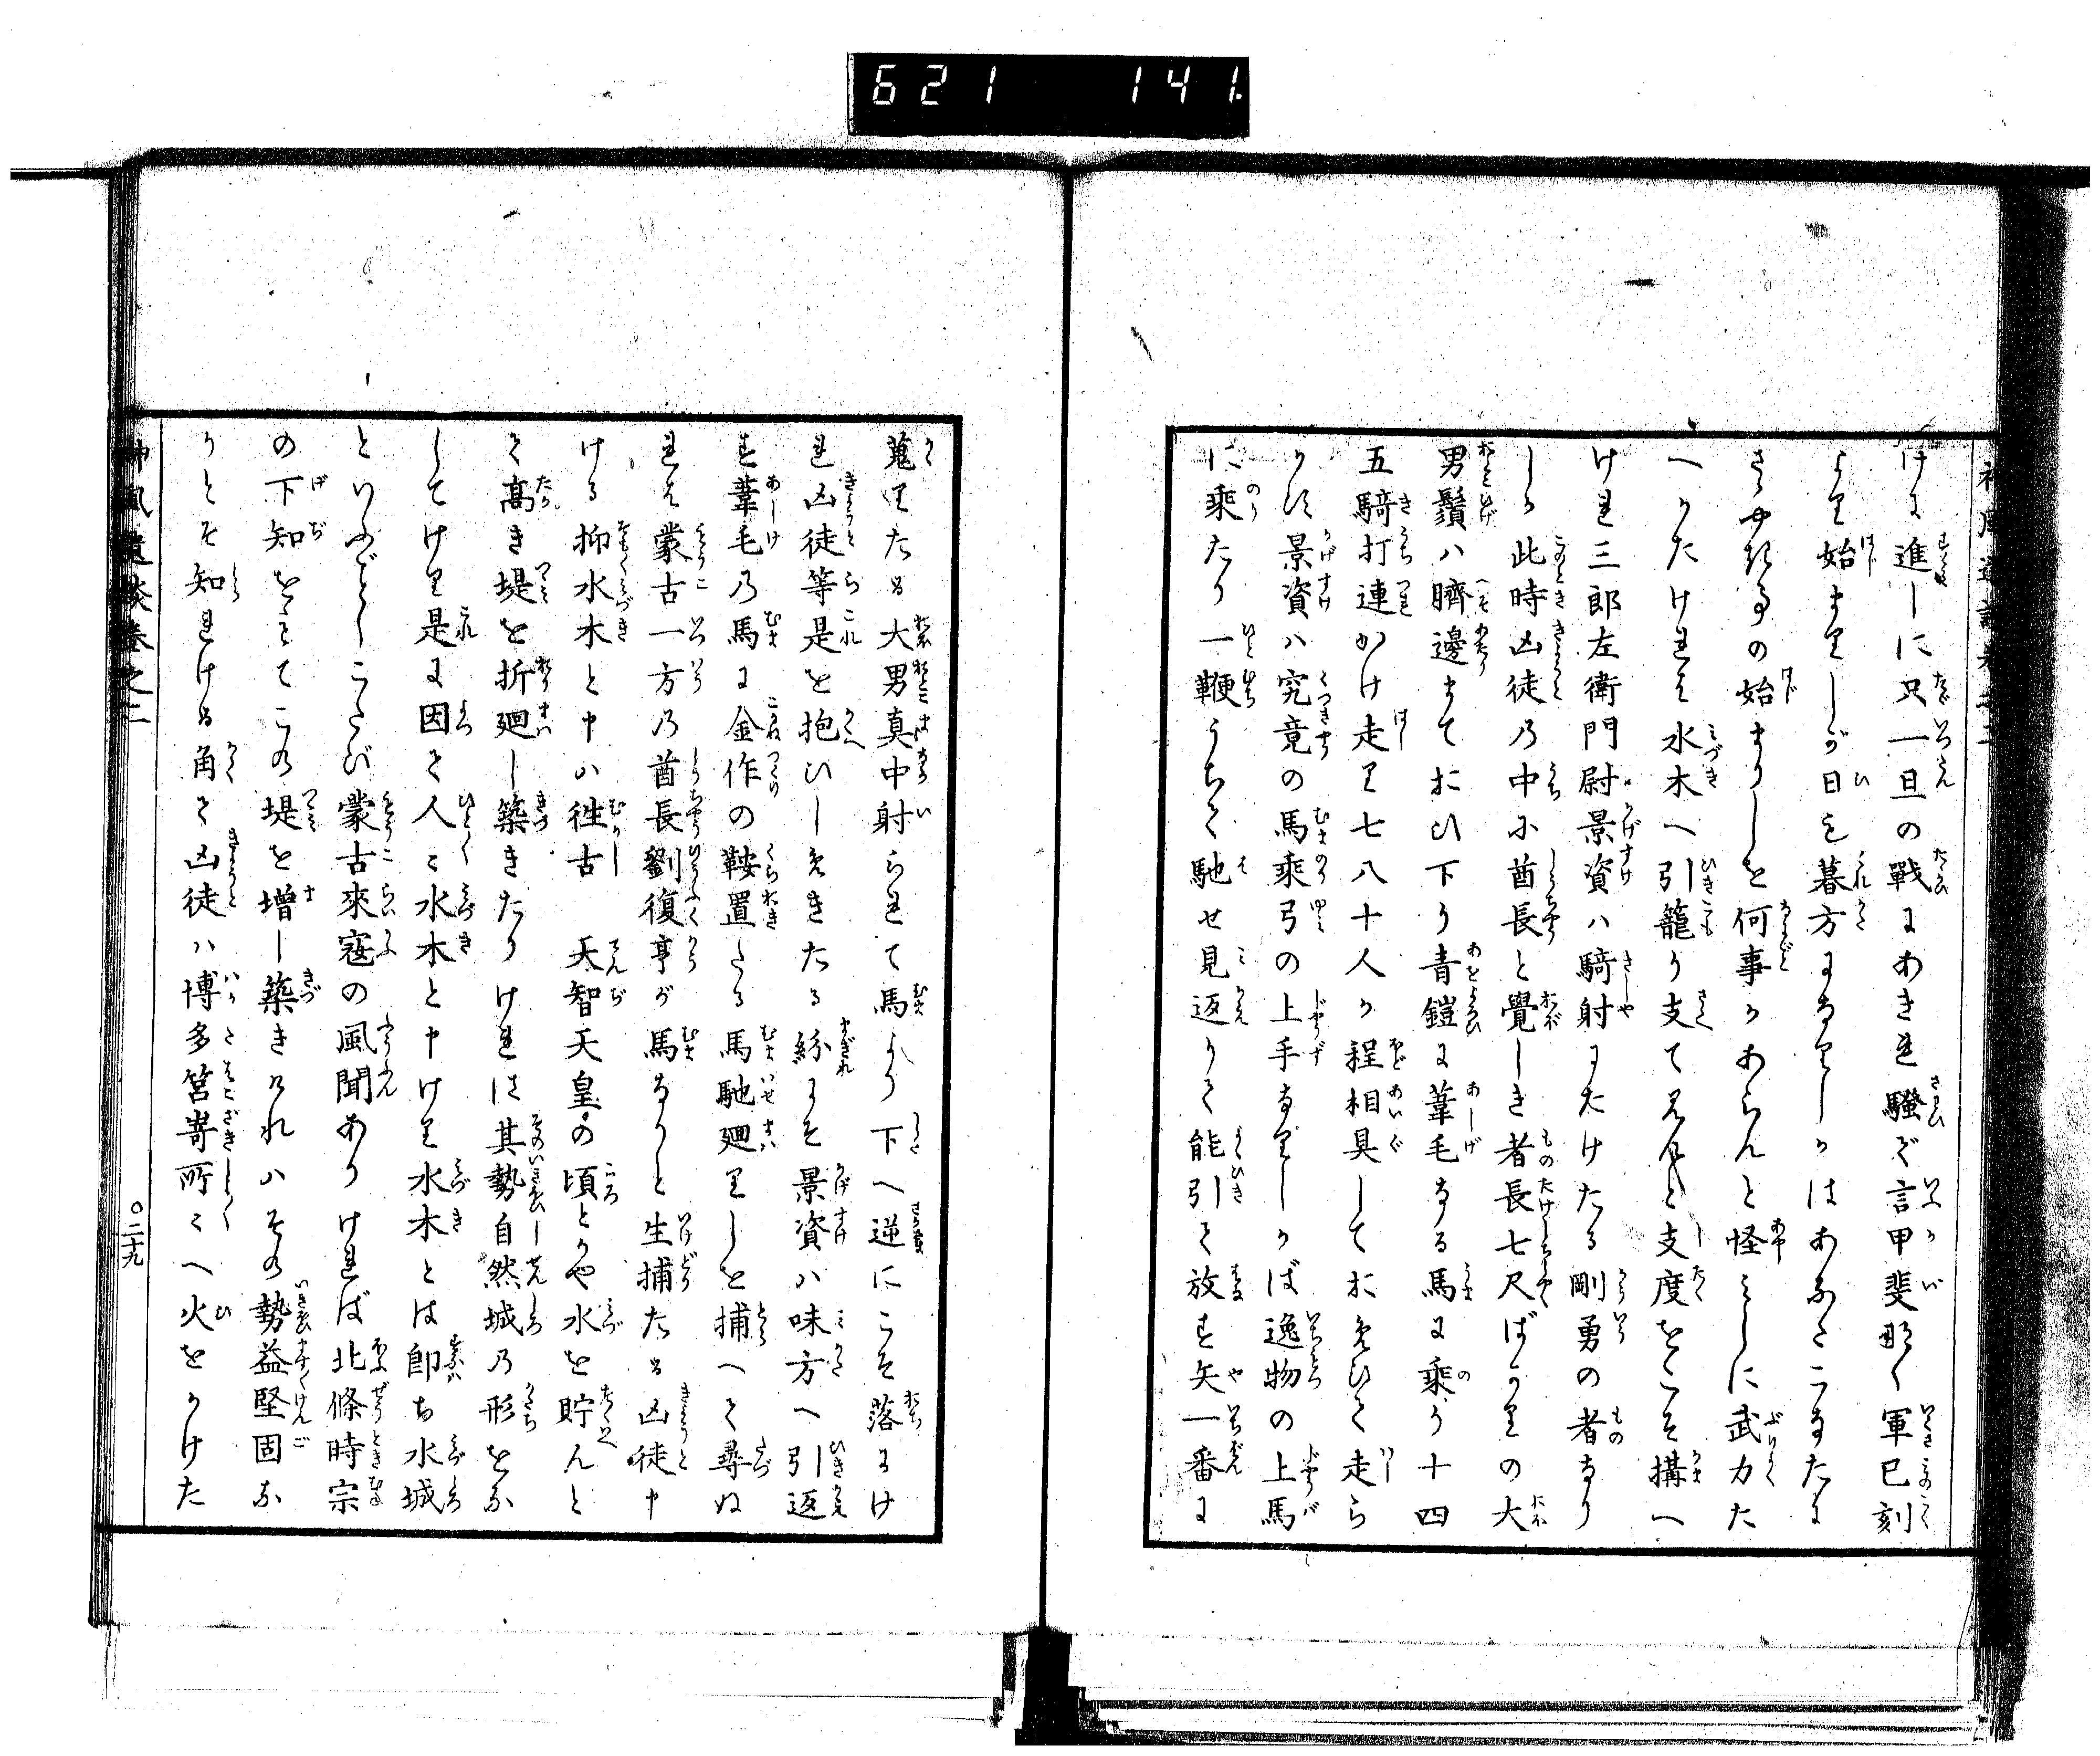 621 141
けに進しに只一旦の戰にあきれ騒ぞ言甲斐那く軍巳刻
より始まりしが日も暮方になりしかはあなたこなたに
さゝやきの始まりしを何事かあらんと怪みしに武力た
へかたけれは水木へ引籠り支て見んと支度をこそ搆へ
けれ三郎左衛門尉景資ハ騎射にたけたる剛勇の者なり
しか此時凶徒乃中に酋長と覺しき者長七尺ばかりの大
男鬚ハ臍邊まておひ下り青鎧に葦毛なる馬に乘り十四
五騎打連かけ走り七八十人か程相具しておめひて走ら
かす景資ハ究竟の馬乘弓の上手なりしかば逸物の上馬
に乘たり一鞭うちて馳せ見返りて能引て放す矢一番に
蒐りたる大男真中射られて馬より下へ逆にこそ落にけ
れ凶徒等是を抱ひしめきたる紛にそ景資ハ味方へ引返
す葦毛乃馬に金作の鞍置たる馬馳廻りしを捕へて尋ぬ
れは蒙古一方乃酋長劉復亨が馬なりと生捕たる凶徒申
ける抑水木と申ハ徃古 天智天皇の頃とかや水を貯んと
て高き堤を折廻し築きたりけれは其勢自然城乃形をな
してけり是に因て人々水木と申けり水木とは即ち水城
といふごとしこたび蒙古來寇の風聞ありければ北條時宗
の下知をもてこの堤を増し築きけれハその勢益堅固な
りとそ知られける角て凶徒ハ博多筥嵜所々へ火をかけた
神風遺談巻之二
○二十九